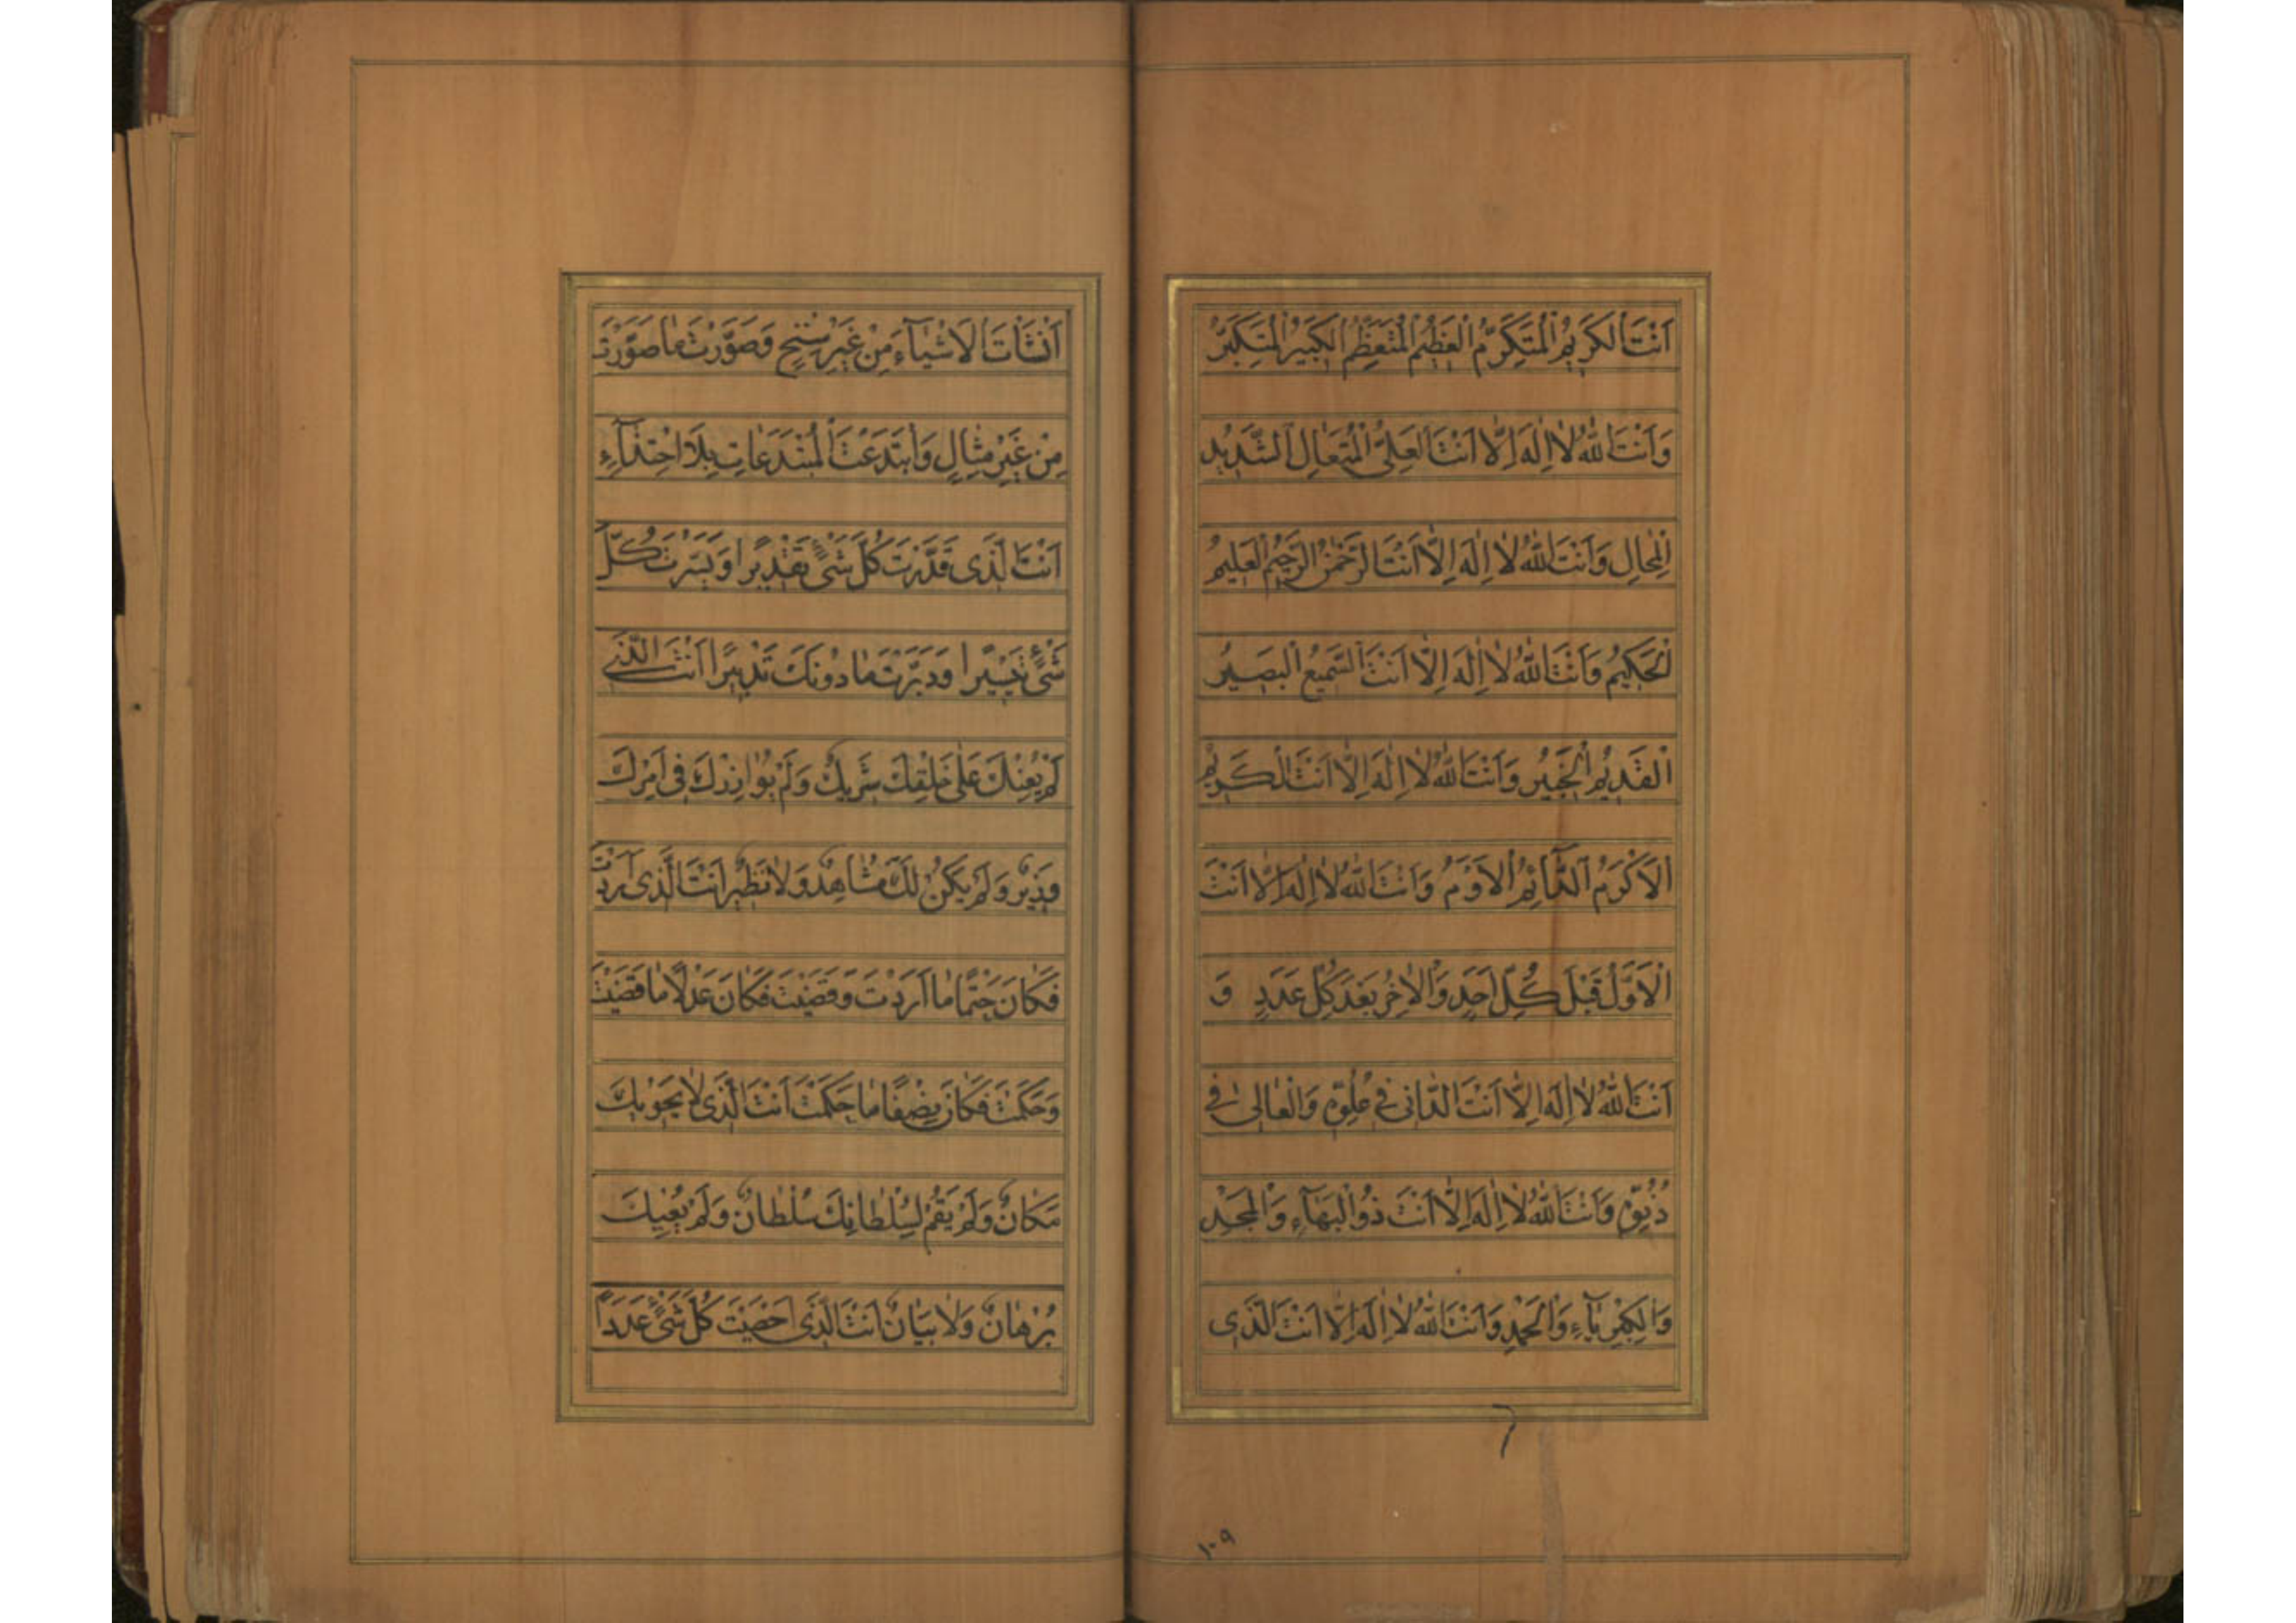 اَنْتَ الْكَرِيمُ الْمُتَكَرِّمُ الْعَظِيمُ الْمُتَعَظِّمُ الْكَبِيرُ الْمُتَكَبِّرُ
وَاَنْتَ اللّٰهُ لَا اِلٰهَ اِلَّا اَنْتَ الْعَلِىُّ الْمُتَعَالِ الشَّدِيدُ
الْمِحَالِ وَاَنْتَ اللّٰهُ لَا اِلٰهَ اِلَّا اَنْتَ الرَّحْمٰنُ الرَّحِيمُ الْعَلِيمُ
الْحَكِيمُ وَاَنْتَ اللّٰهُ لَا اِلٰهَ اِلَّا اَنْتَ السَّمِيعُ الْبَصِيرُ
الْقَدِيمُ الْخَبِيرُ وَاَنْتَ اللّٰهُ لَا اِلٰهَ اِلَّا اَنْتَ الْكَرِيمُ
الْاَكْرَمُ الدَّآئِمُ الْاَدْوَمُ وَاَنْتَ اللّٰهُ لَا اِلٰهَ اِلَّا اَنْتَ
الْاَوَّلُ قَبْلَ كُلِّ اَحَدٍ وَالْاٰخِرُ بَعْدَ كُلِّ عَدَدٍ وَ
اَنْتَ اللّٰهُ لَا اِلٰهَ اِلَّا اَنْتَ الدَّانِى فِى عُلُوِّهِ وَالْعَالِى فِى
دُنُوِّهِ وَاَنْتَ اللّٰهُ لَا اِلٰهَ اِلَّا اَنْتَ ذُو الْبَهَآءِ وَالْمَجْدِ
وَالْكِبْرِيَآءِ وَالْحَمْدِ وَاَنْتَ اللّٰهُ لَا اِلٰهَ اِلَّا اَنْتَ الَّذِى
١٠٩
اَنْشَأْتَ الْاَشْيَآءَ مِنْ غَيْرِ سِنْخٍ وَصَوَّرْتَ مَا صَوَّرْتَ
مِنْ غَيْرِ مِثَالٍ وَابْتَدَعْتَ الْمُبْتَدَعَاتِ بِلَا احْتِذَآءٍ
اَنْتَ الَّذِى قَدَّرْتَ كُلَّ شَىْءٍ تَقْدِيرًا وَيَسَّرْتَ كُلَّ
شَىْءٍ تَيْسِيرًا وَدَبَّرْتَ مَا دُونَكَ تَدْبِيرًا اَنْتَ الَّذِى
لَمْ يُعِنْكَ عَلٰى خَلْقِكَ شَرِيكٌ وَلَمْ يُوَازِرْكَ فِى اَمْرِكَ
وَزِيرٌ وَلَمْ يَكُنْ لَكَ مُشَاهِدٌ وَلَا نَظِيرٌ اَنْتَ الَّذِى اَرَدْتَ
فَكَانَ حَتْمًا مَا اَرَدْتَ وَقَضَيْتَ فَكَانَ عَدْلًا مَا قَضَيْتَ
وَحَكَمْتَ فَكَانَ نِصْفًا مَا حَكَمْتَ اَنْتَ الَّذِى لَا يَحْوِيكَ
مَكَانٌ وَلَمْ يَقُمْ لِسُلْطَانِكَ سُلْطَانٌ وَلَمْ يُعْيِكَ
بُرْهَانٌ وَلَا بَيَانٌ اَنْتَ الَّذِى اَحْصَيْتَ كُلَّ شَىْءٍ عَدَدًا